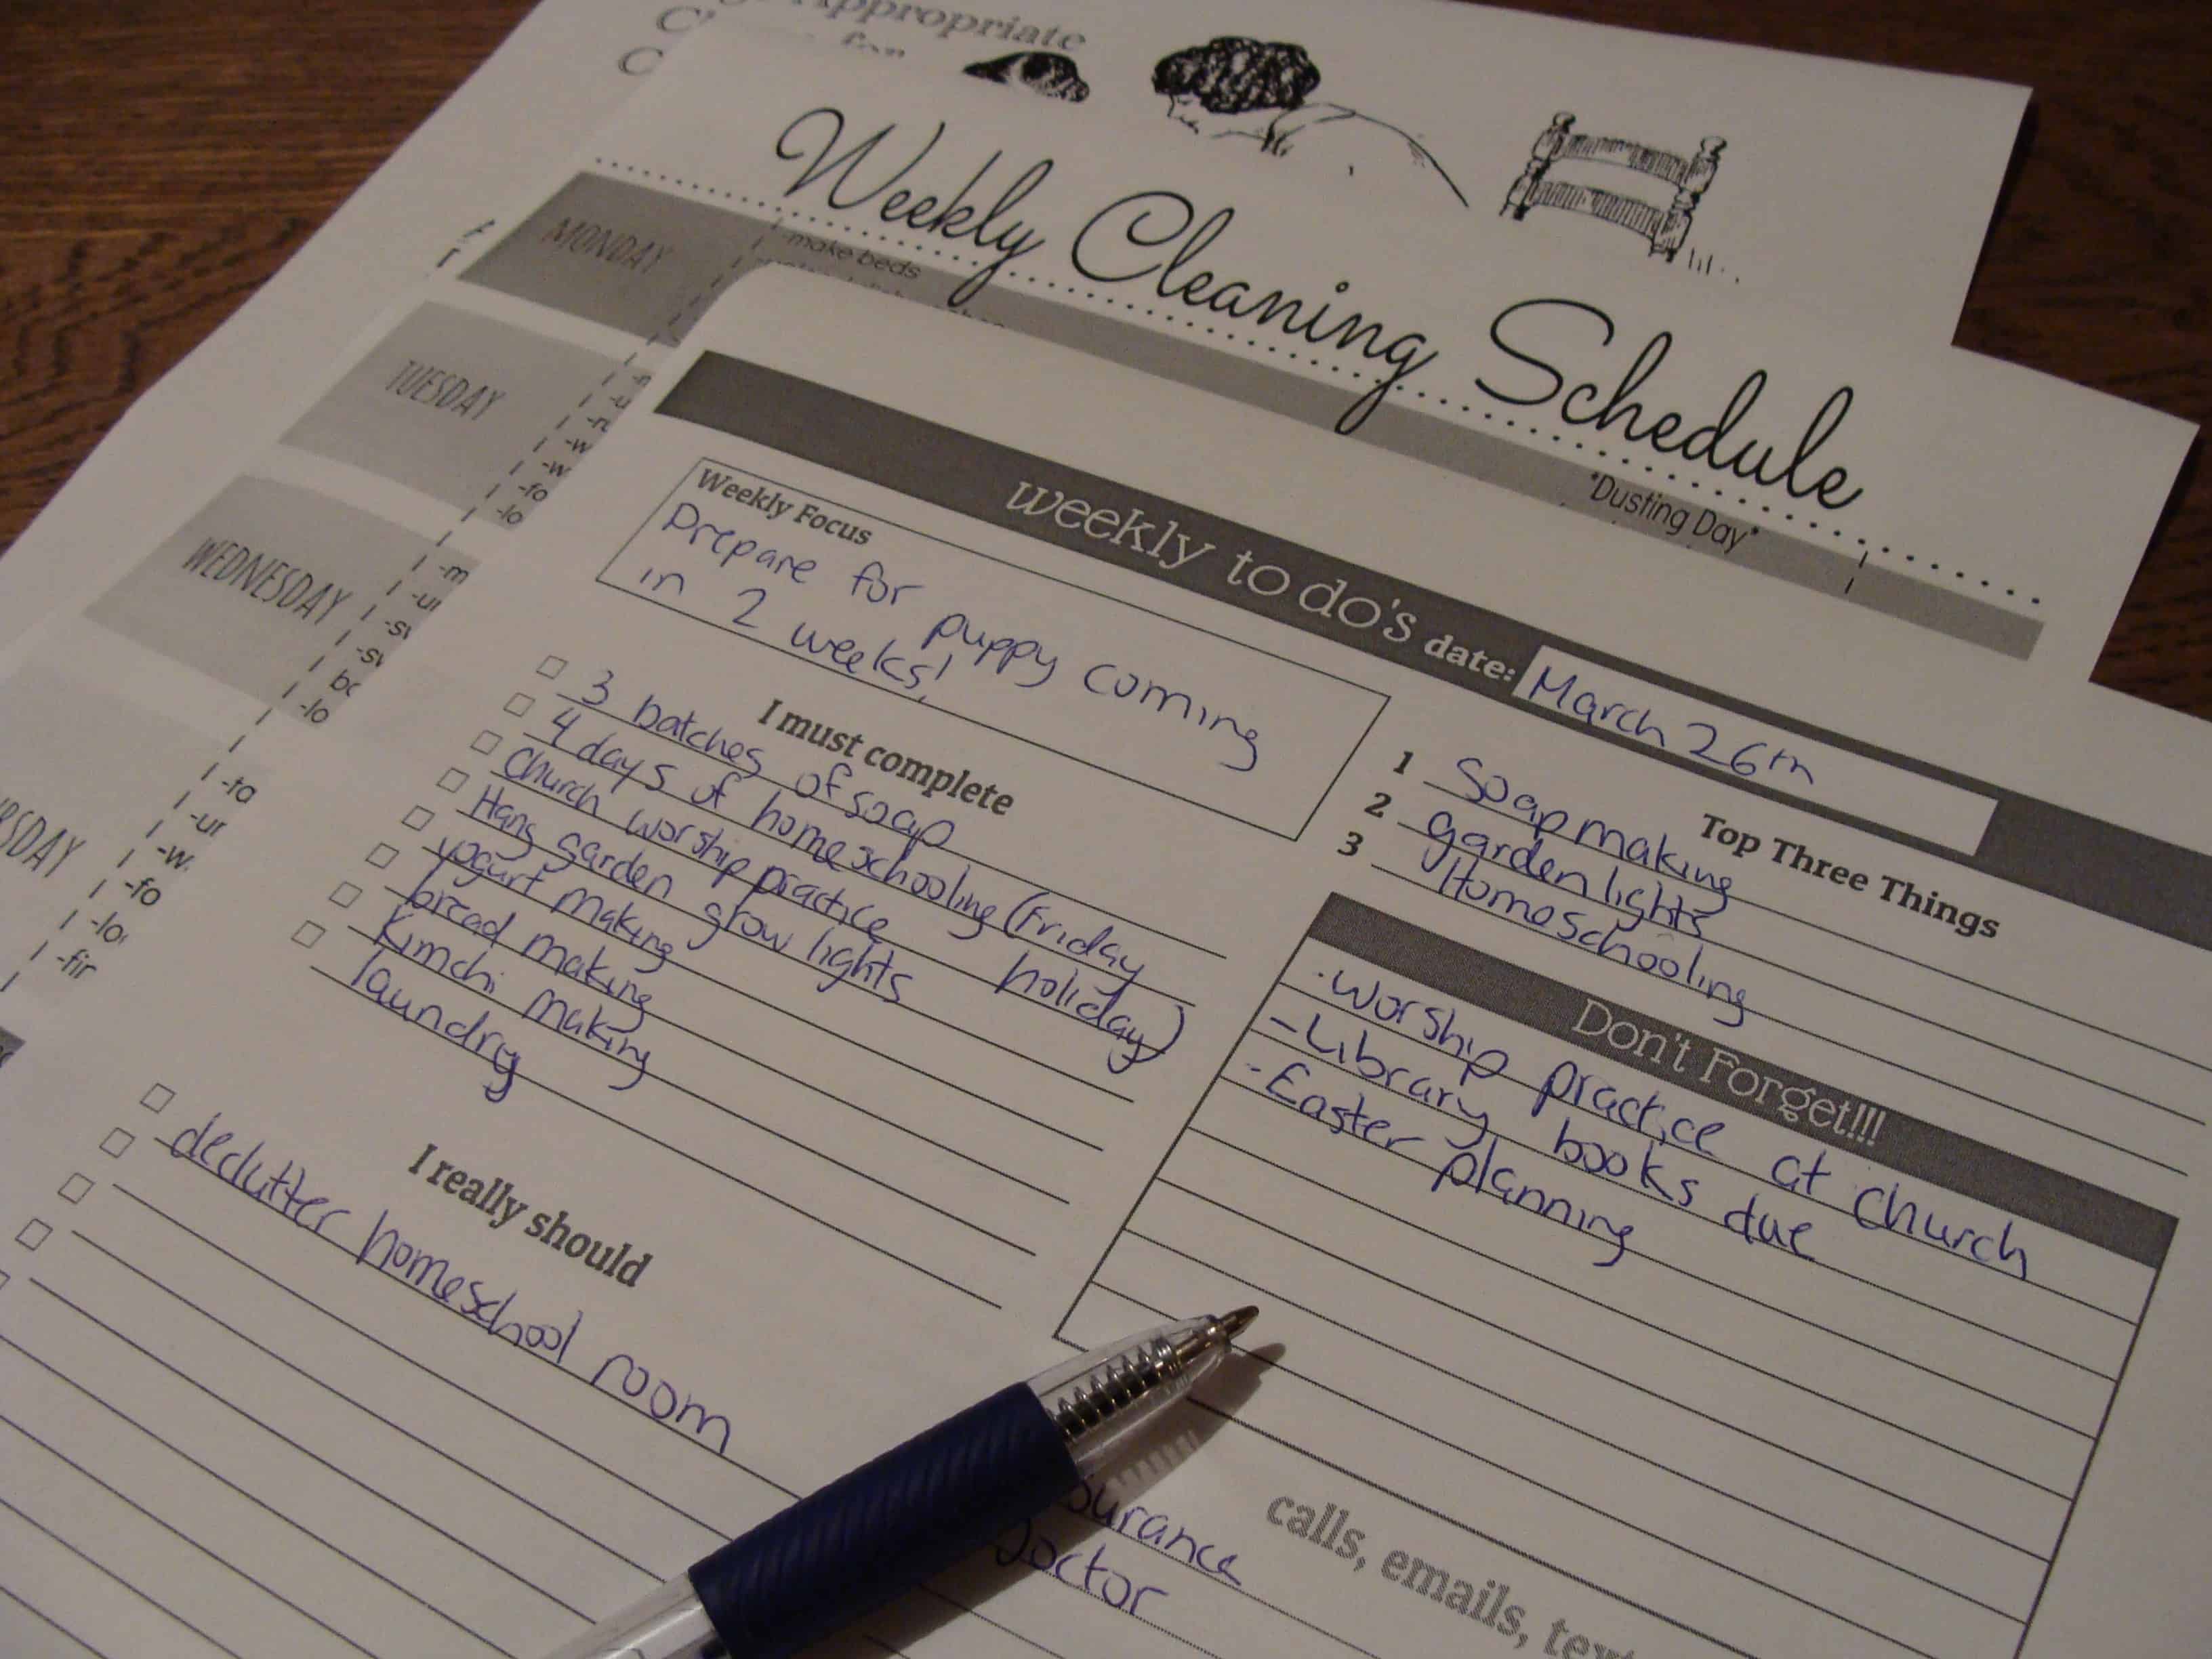 Appropriate
for
Weekly Cleaning Schedule
MONDAY
-make beds
"Dusting Day"
TUESDAY
-u
-w
-w
-fo
-lo
WEDNESDAY
-m
-ur
-sv
-sv
bc
-lo
RSDAY
-ta
-ur
-w
-fo
-lo
-fir
weekly to do's date: March 26th
Weekly Focus
Prepare for puppy coming
in 2 weeks!
I must complete
3 batches of soap
4 days of homeschooling (Friday
holiday)
Church worship practice
Hang garden grow lights
yogurt making
bread making
Kimchi making
laundry
I really should
declutter homeschool room
Top Three Things
1 Soapmaking
2 garden lights
3 Homeschooling
Don't Forget!!!
-Worship practice at church
-Library books due
-Easter planning
calls, emails, text
surance
Doctor